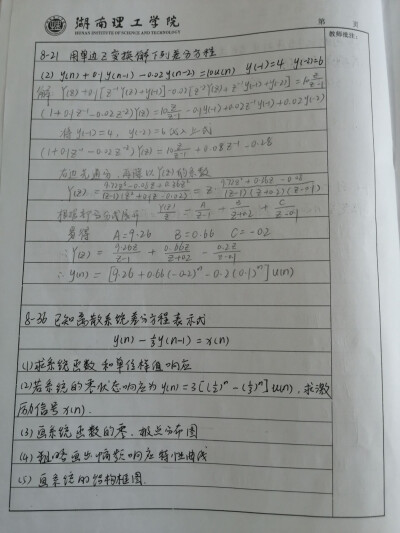 湖南理工学院
HUNAN INSTITUTE OF SCIENCE AND TECHNOLOGY
第 页
教师批注:
8-21 用单边Z变换解下列差分方程
(2) y(n)+0.1y(n-1)-0.02y(n-2)=10u(n) y(-1)=4 y(-2)=6
解 Y(z)+0.1[z⁻¹Y(z)+y(-1)]-0.02[z⁻²Y(z)+z⁻¹y(-1)+y(-2)]=10 z/z-1
(1+0.1z⁻¹-0.02z⁻²)Y(z)=10 z/z-1 -0.1y(-1)+0.02z⁻¹y(-1)+0.02y(-2)
将y(-1)=4, y(-2)=6代入上式
(1+0.1z⁻¹-0.02z⁻²)Y(z)=10 z/z-1 +0.08z⁻¹-0.28
右边先通分,再除以Y(z)的系数
算得 A=9.26 B=0.66 C=-0.2
∴Y(z)= 9.26z/z-1 + 0.66z/z+0.2 - 0.2z/z-0.1
∴y(n)=[9.26+0.66(-0.2)ⁿ-0.2(0.1)ⁿ]u(n)
8-36 已知离散系统差分方程表示式
y(n)-⅓y(n-1)=x(n)
(1)求系统函数和单位样值响应
(2)若系统的零状态响应为y(n)=3[(½)ⁿ-(⅓)ⁿ]u(n),求激
励信号x(n).
(3)画系统函数的零、极点分布图
(4)粗略画出幅频响应特性曲线
(5)画系统的结构框图.